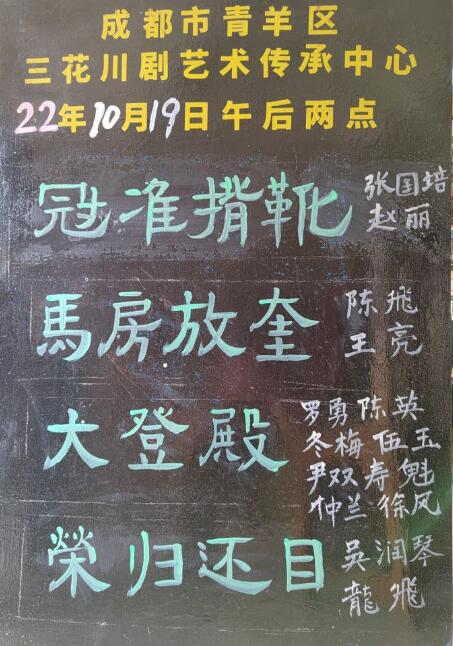 成都市青羊区
三花川剧艺术传承中心
22年10月19日午后两点
冠准揹靴
张国培
赵丽
馬房放奎
陈飛
王亮
大登殿
罗勇 陈英
冬梅 伍玉
尹双 寿魁
仲兰 徐风
榮归还目
吴润琴
龍飛